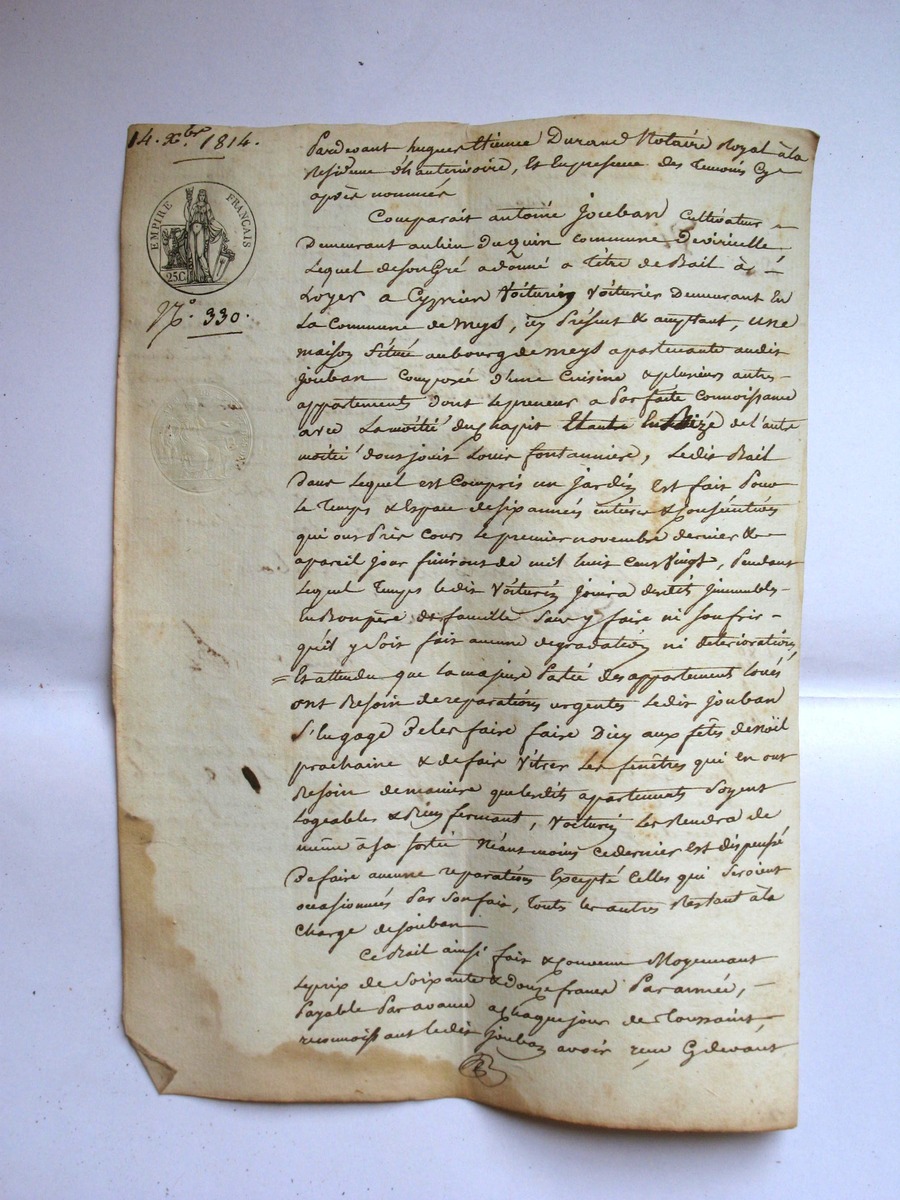 14. Xbre 1814.
EMPIRE FRANÇAIS
25C
N°. 330.
Pardevant hugues Etienne Durand Notaire Royal à la
Residence d'hauterivoire, Et En presence des Temoins Cy
après nommés
Comparait antoine Jouban Cultivateur
Demeurant au lieu Duquin Commune Deviricelle
Lequel de son Gré a donné a Titre de Bail à
Loyer a Cyprien Voiturin Voiturier Demeurant En
La Commune de meys, icy Présent & acceptant, une
maison Située aubourg de meys apartenante audit
Jouban Composée d'une Cuisine & plusieurs autres
appartements dont Lepreneur a Parfaite Connoissance
avec La moitié du chapit de l'autre
moitié dont jouit Louis fontanniere, Ledit Bail
Dans Lequel est Compris un Jardin Est fait Pour
Le Temps & Espace de six années entieres & Consécutives
qui ont Pris Cours Le premier novembre dernier &
apareil jour finiront de mil huit Cent Vingt, Pendant
Lequel Temps Ledit Voiturin Jouira desdits Immeubles
En Bon père de famille Sans y faire ni Soufrir
qu'il y Soit fait aucune degradation ni deterioration,
= Et attendu que La majeure Partie des appartement Loués
ont Besoin de reparations urgentes Ledit Jouban
S'Engage De les faire faire Dicy aux fêtes de noël
prochaine & de faire Vitrer Les fenêtres qui en ont
Besoin de maniere que lesdits apartements Soyent
Logeables & Bien fermant, Voiturin Les Rendra de
même à Sa Sortie Néantmoins Ce dernier Est dispensé
De faire aucune reparations Excepté Celles qui Seroient
ocasionnées Par Son fait, Touts Les autres Restant à la
Charge de Jouban
Ce Bail ainsi fait & Convenu Moyennant
Le prix de Soixante & douze francs Par année,
Payable Par avance a chaque jour de Toussaint,
reconnoissant Ledit Jouban avoir reçu Cydevant